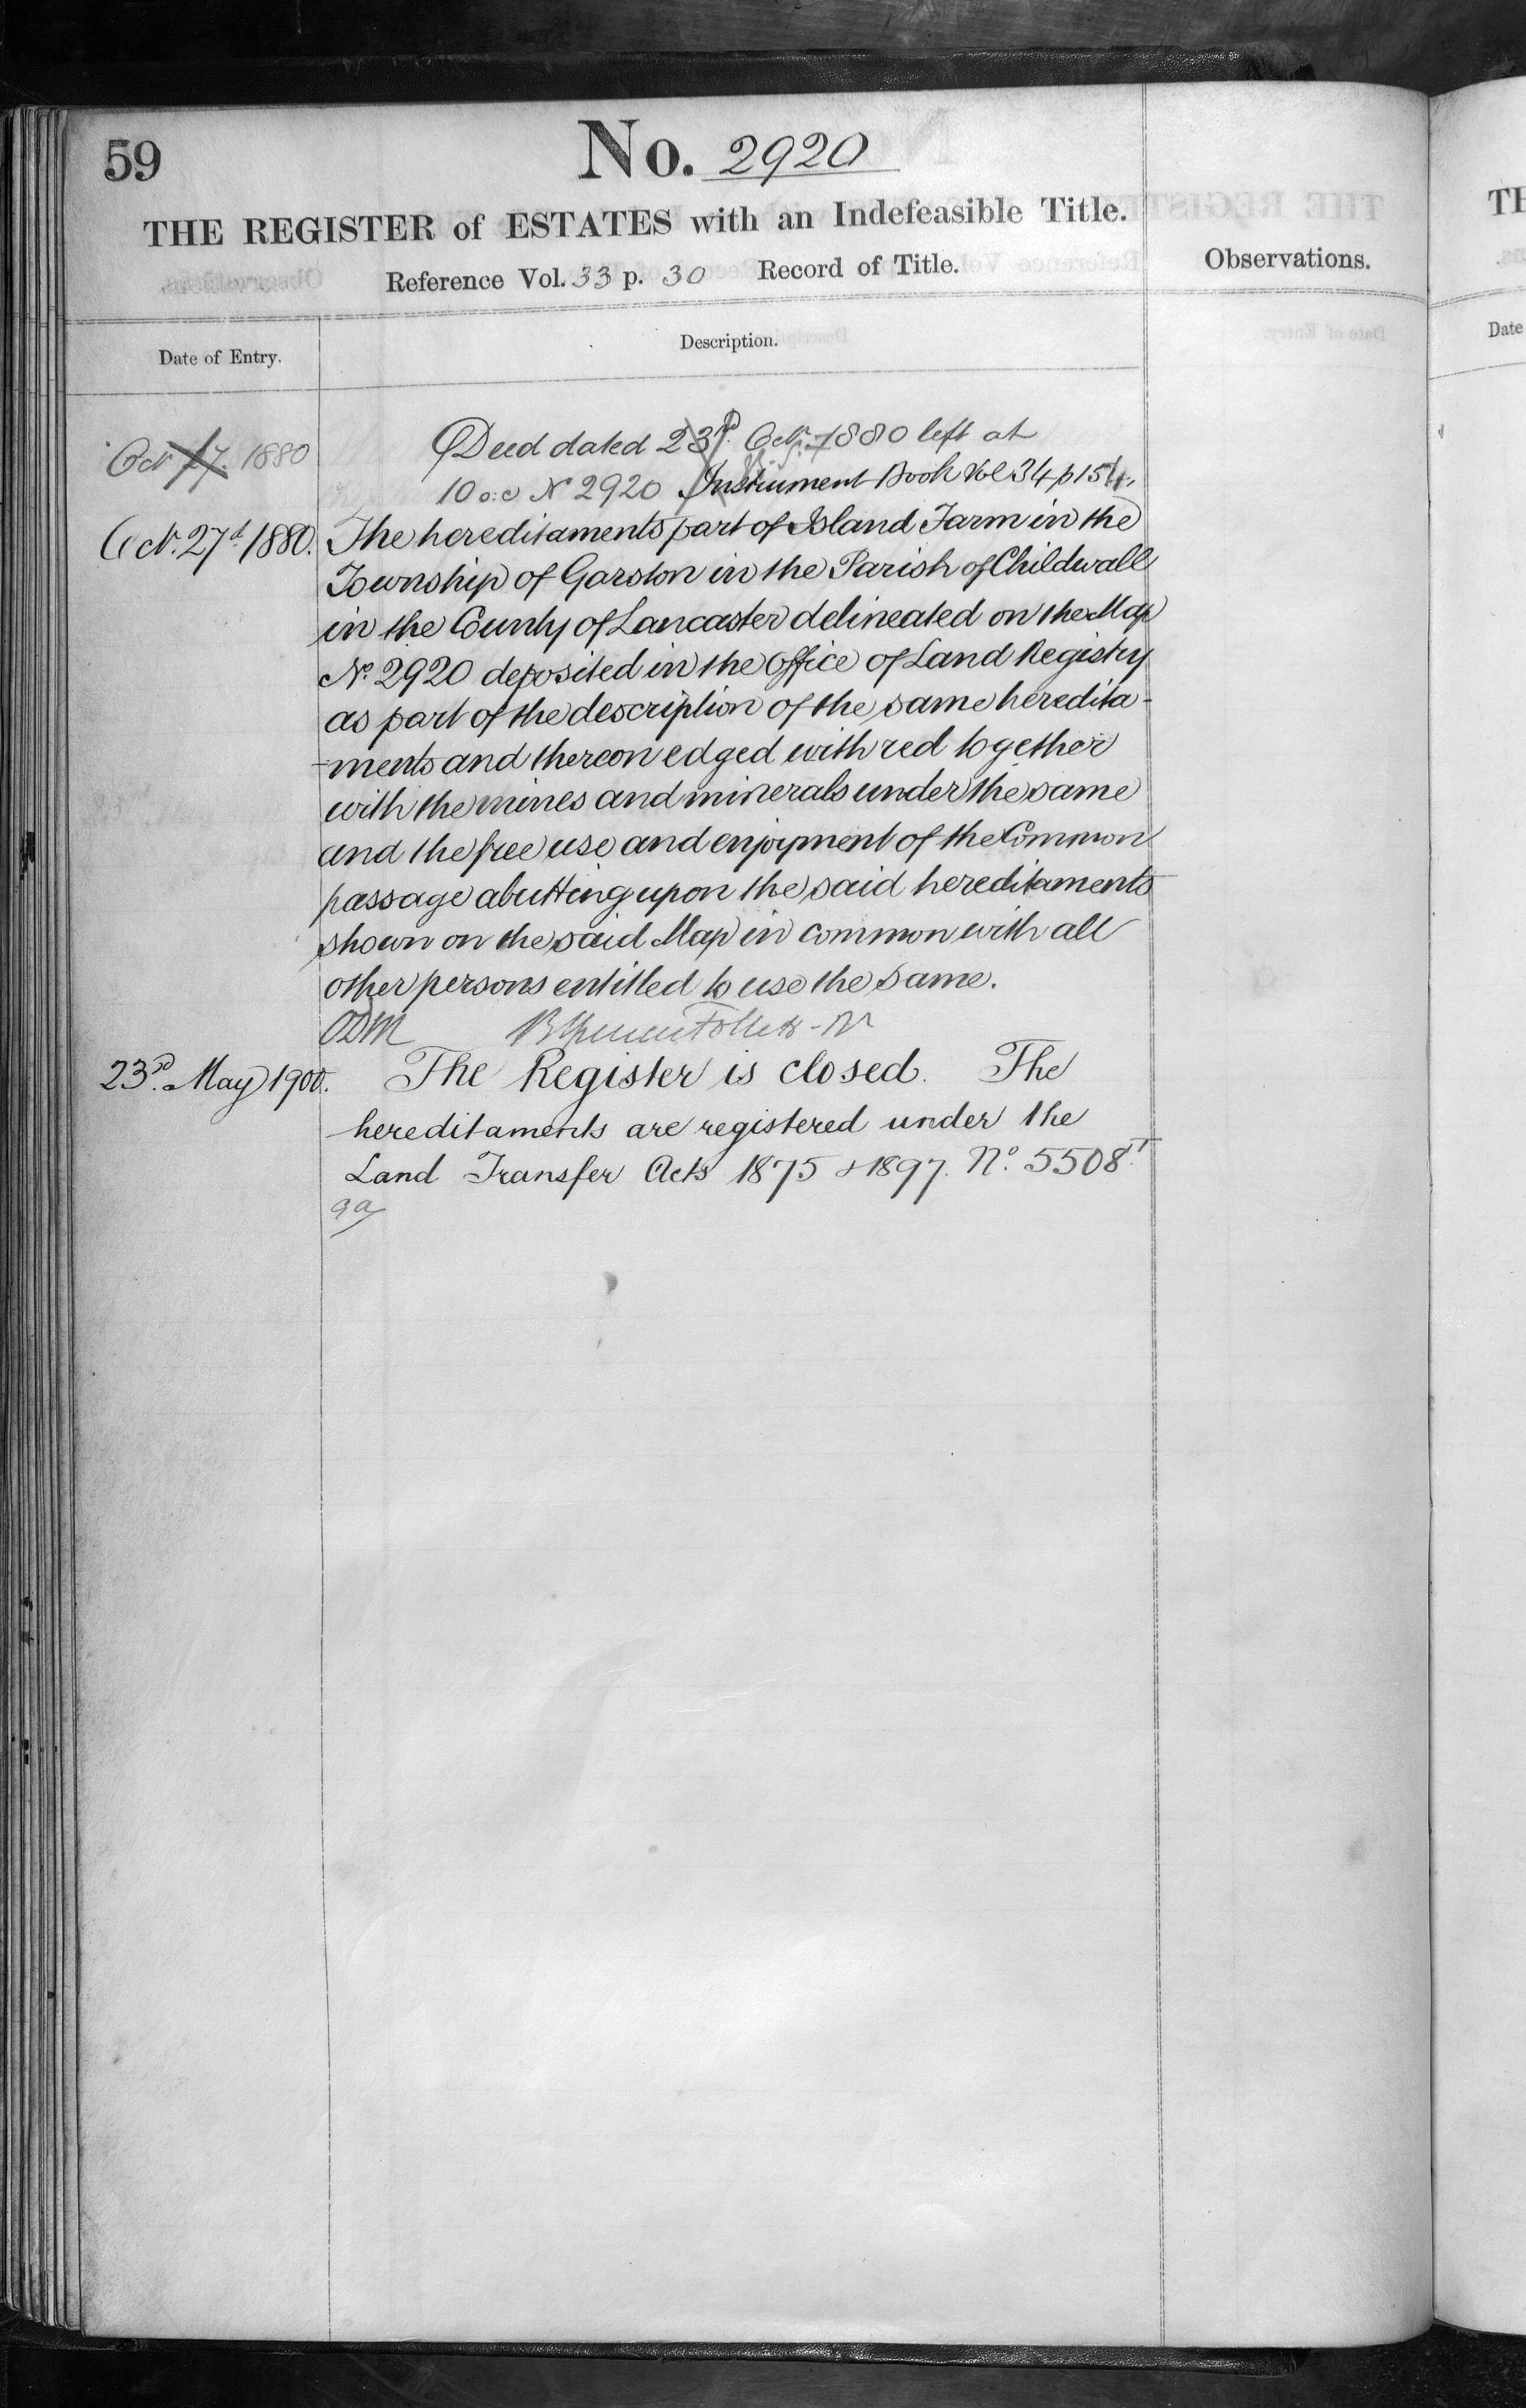 59
No. 2920
THE REGISTER of ESTATES with an Indefeasible Title.
Reference Vol. 33 p. 30 Record of Title.
Observations.
Date of Entry.
Description.
Oct 27. 1880
Deed dated 23rd. Oct. 1880 left at
10 o:c No 2920 Instrument Book Vol 34 p 154.
Oct. 27th 1880.
The hereditaments part of Island Farm in the
Township of Garston in the Parish of Childwall
in the County of Lancaster delineated on the Map
No. 2920 deposited in the Office of Land Registry
as part of the description of the same heredita-
-ments and thereon edged with red together
with the mines and minerals under the same
and the free use and enjoyment of the Common
passage abutting upon the said hereditaments
shown on the said Map in common with all
other persons entitled to use the same.
ODM
23rd. May 1900.
The Register is closed. The
hereditaments are registered under the
Land Transfer Acts 1875 & 1897. No. 5508
TH
Date